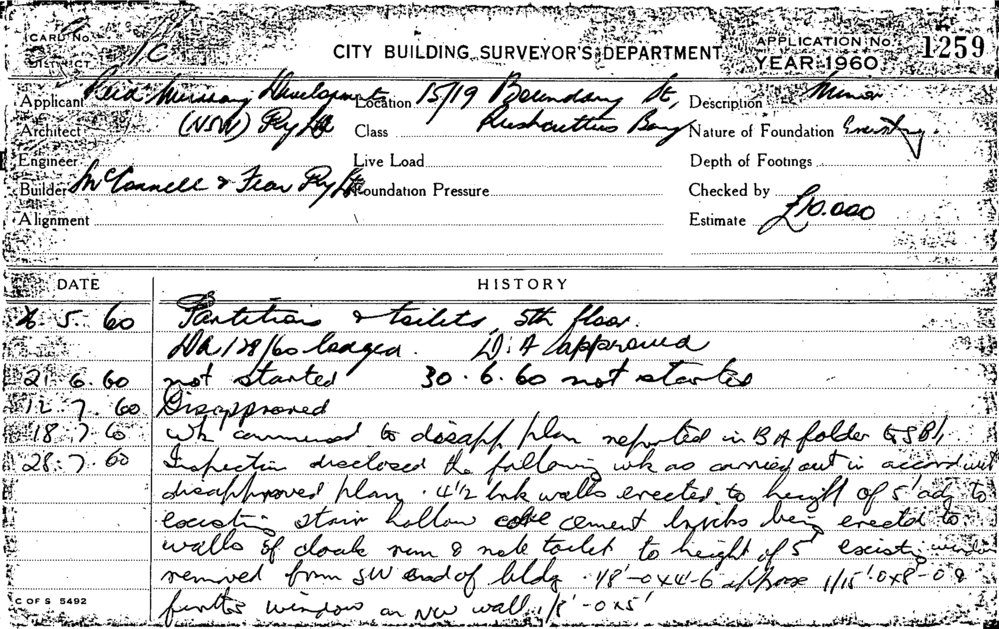 CARD No.
DISTRICT
CITY BUILDING SURVEYOR'S DEPARTMENT
APPLICATION No. 1259
YEAR 1960
Applicant Reid Murray Developments Location 15/19 Boundary St, Description Minor
Architect (NSW) Pty Ltd Class Rushcutters Bay Nature of Foundation Existing.
Engineer Live Load Depth of Footings
Builder McConnell & Fear Pty Ltd Foundation Pressure Checked by
Alignment Estimate £10.000
DATE HISTORY
5. 60 Partitions & toilets, 5th floor.
DA 128/60 lodged. D.A approved
21.6.60 not started 30.6.60 not started
12.7.60 Disapproved
18.7.60 wk commenced to disapp plan reported in BA folder
28.7.60 Inspection disclosed the following wk as carried out in accord with
disapproved plan. 4½ bnk walls erected to height of 5' adj to
existing stair hollow core cement bricks being erected to
walls of cloak rm & male toilet to height of 5' existing window
removed from SW end of bldg. 1/8'-0x4'-6 approx 1/15'.0x8'-0 &
further window on NW wall 1/8'-0x5'
C OF S 5492